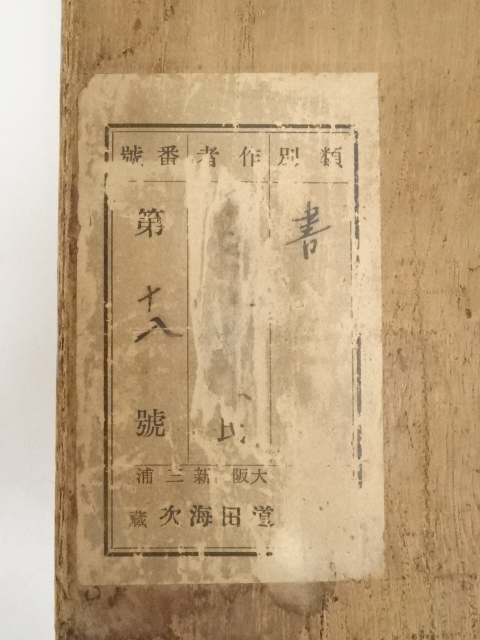 類別
書
作者
氏
番號
第十八號
大阪新三浦
田海次藏